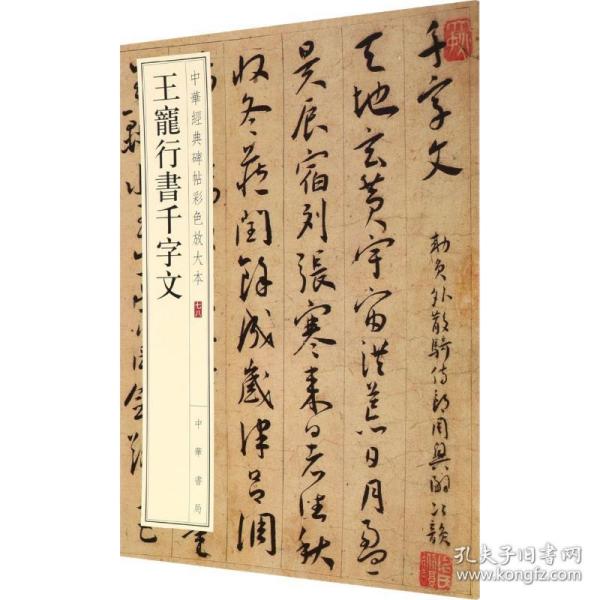 王寵行書千字文
中華經典碑帖彩色放大本
七八
中華書局
千字文
敕員外散騎侍郎周興嗣次韻
天地玄黃宇宙洪荒日月盈
昃辰宿列張寒來暑往秋
收冬藏閏餘成歲律呂調
孔夫子旧書网
www.kongfz.com